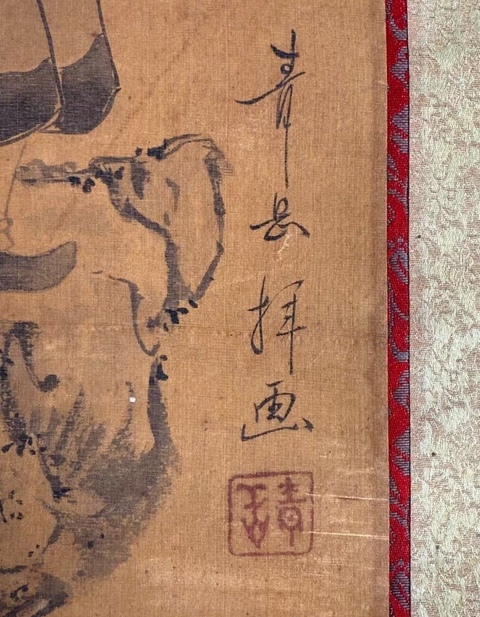 青岳拝画
青